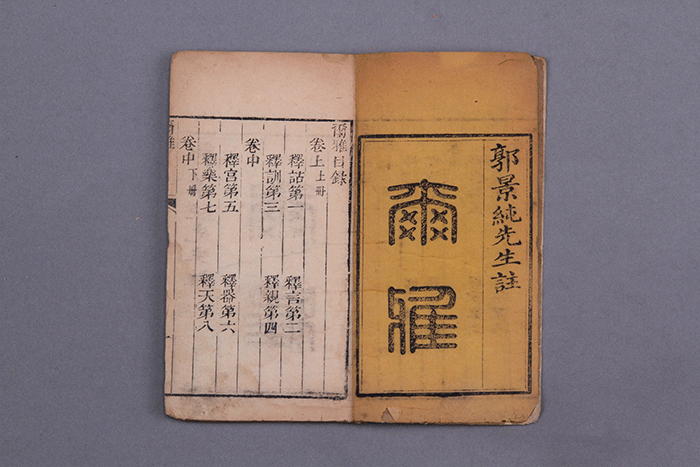 郭景純先生註
爾雅
爾雅目錄
卷上上冊
釋詁第一 釋言第二
釋訓第三 釋親第四
卷中
釋宮第五 釋器第六
釋樂第七 釋天第八
卷中下冊
爾雅